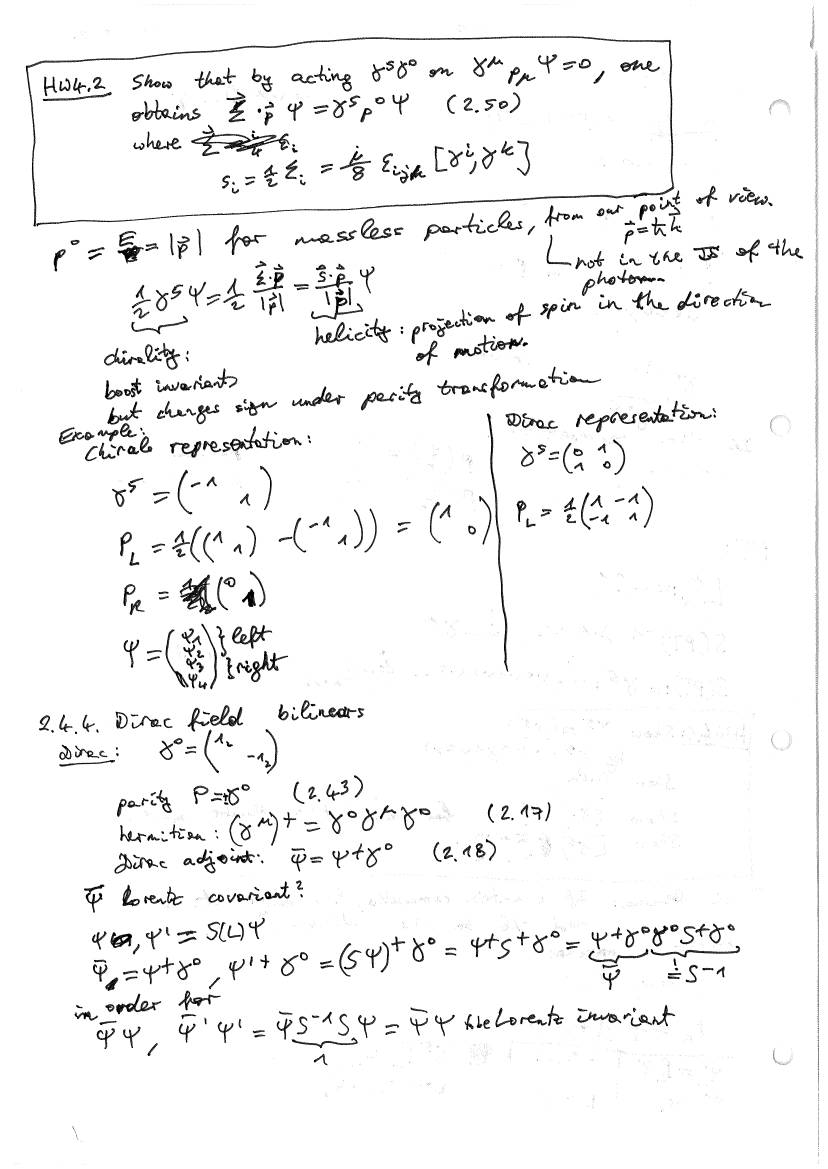 HW4.2 Show that by acting γ⁵γ⁰ on γ^μ p_μ Ψ=0, one
obtains Σ⃗·p⃗ Ψ = γ⁵p⁰Ψ (2.50)
where
s_i = ½ Σ_i = i/8 ε_ijk [γ^i, γ^k]
p⁰ = E = |p⃗| for massless particles, from our point of view.
p⃗=ħk⃗
not in the IS of the
photon
½γ⁵Ψ = ½ Σ⃗·p⃗/|p⃗| = s⃗·p⃗/|p⃗| Ψ
helicity: projection of spin in the direction
of motion.
chirality:
boost invariant
but changes sign under parity transformation
Example:
Chirale representation:
γ⁵ = (⁻¹ ₁)
P_L = ½((¹ ₁) - (⁻¹ ₁)) = (¹ ₀)
P_R = (⁰ ₁)
Ψ = (Ψ₁ Ψ₂ Ψ₃ Ψ₄) }left }right
Dirac representation:
γ⁵ = (0 1 1 0)
P_L = ½(1 -1 -1 1)
2.4.4. Dirac field bilinears
Dirac: γ⁰ = (1₂ -1₂)
parity P=±γ⁰ (2.43)
hermitian: (γ^μ)† = γ⁰γ^μγ⁰ (2.17)
Dirac adjoint: Ψ̄ = Ψ†γ⁰ (2.18)
Ψ̄ Lorentz covariant?
Ψ, Ψ' = S(L)Ψ
Ψ̄ = Ψ†γ⁰, Ψ'†γ⁰ = (SΨ)†γ⁰ = Ψ†S†γ⁰ = Ψ†γ⁰γ⁰S†γ⁰
Ψ̄ != S⁻¹
in order for
Ψ̄Ψ, Ψ̄'Ψ' = Ψ̄S⁻¹SΨ = Ψ̄Ψ be Lorentz invariant
1